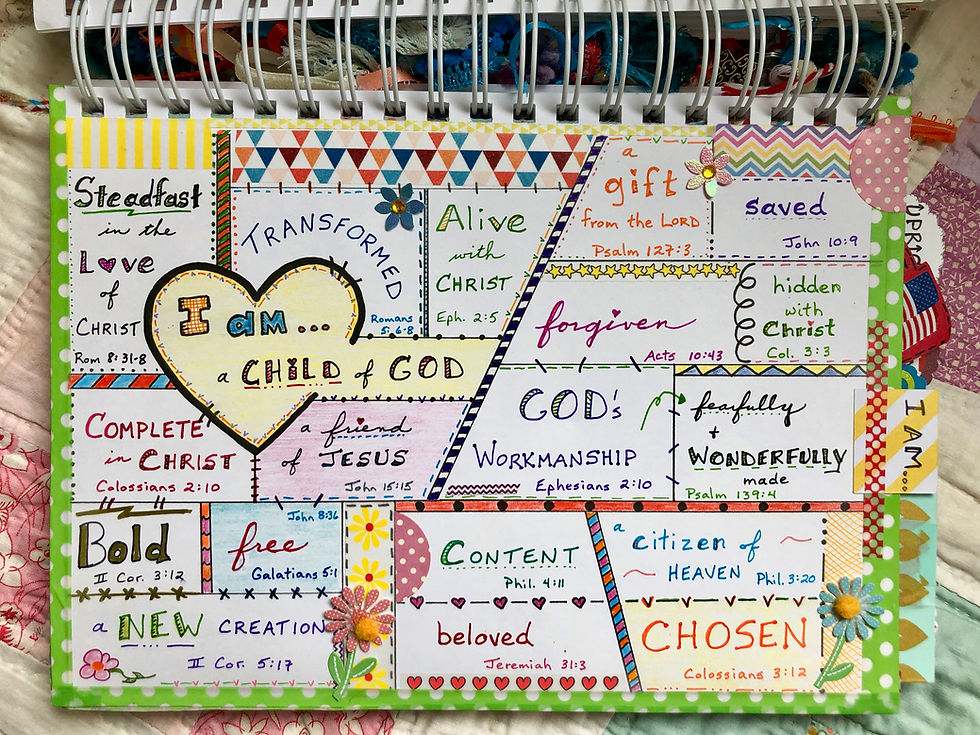 Steadfast
in the
Love
of
CHRIST
Rom 8:31-8
TRANSFORMED
Romans
5:6-8
Alive
with
CHRIST
Eph. 2:5
a
gift
from the LORD
Psalm 127:3
saved
John 10:9
I am...
a CHILD of GOD
forgiven
Acts 10:43
hidden
with
Christ
Col. 3:3
COMPLETE
in CHRIST
Colossians 2:10
a friend
of JESUS
John 15:15
GOD's
WORKMANSHIP
Ephesians 2:10
fearfully
+
WONDERFULLY
made
Psalm 139:4
I AM...
Bold
II Cor. 3:12
John 8:36
free
Galatians 5:1
CONTENT
Phil. 4:11
a
citizen of
HEAVEN
Phil. 3:20
a NEW CREATION
II Cor. 5:17
beloved
Jeremiah 31:3
CHOSEN
Colossians 3:12